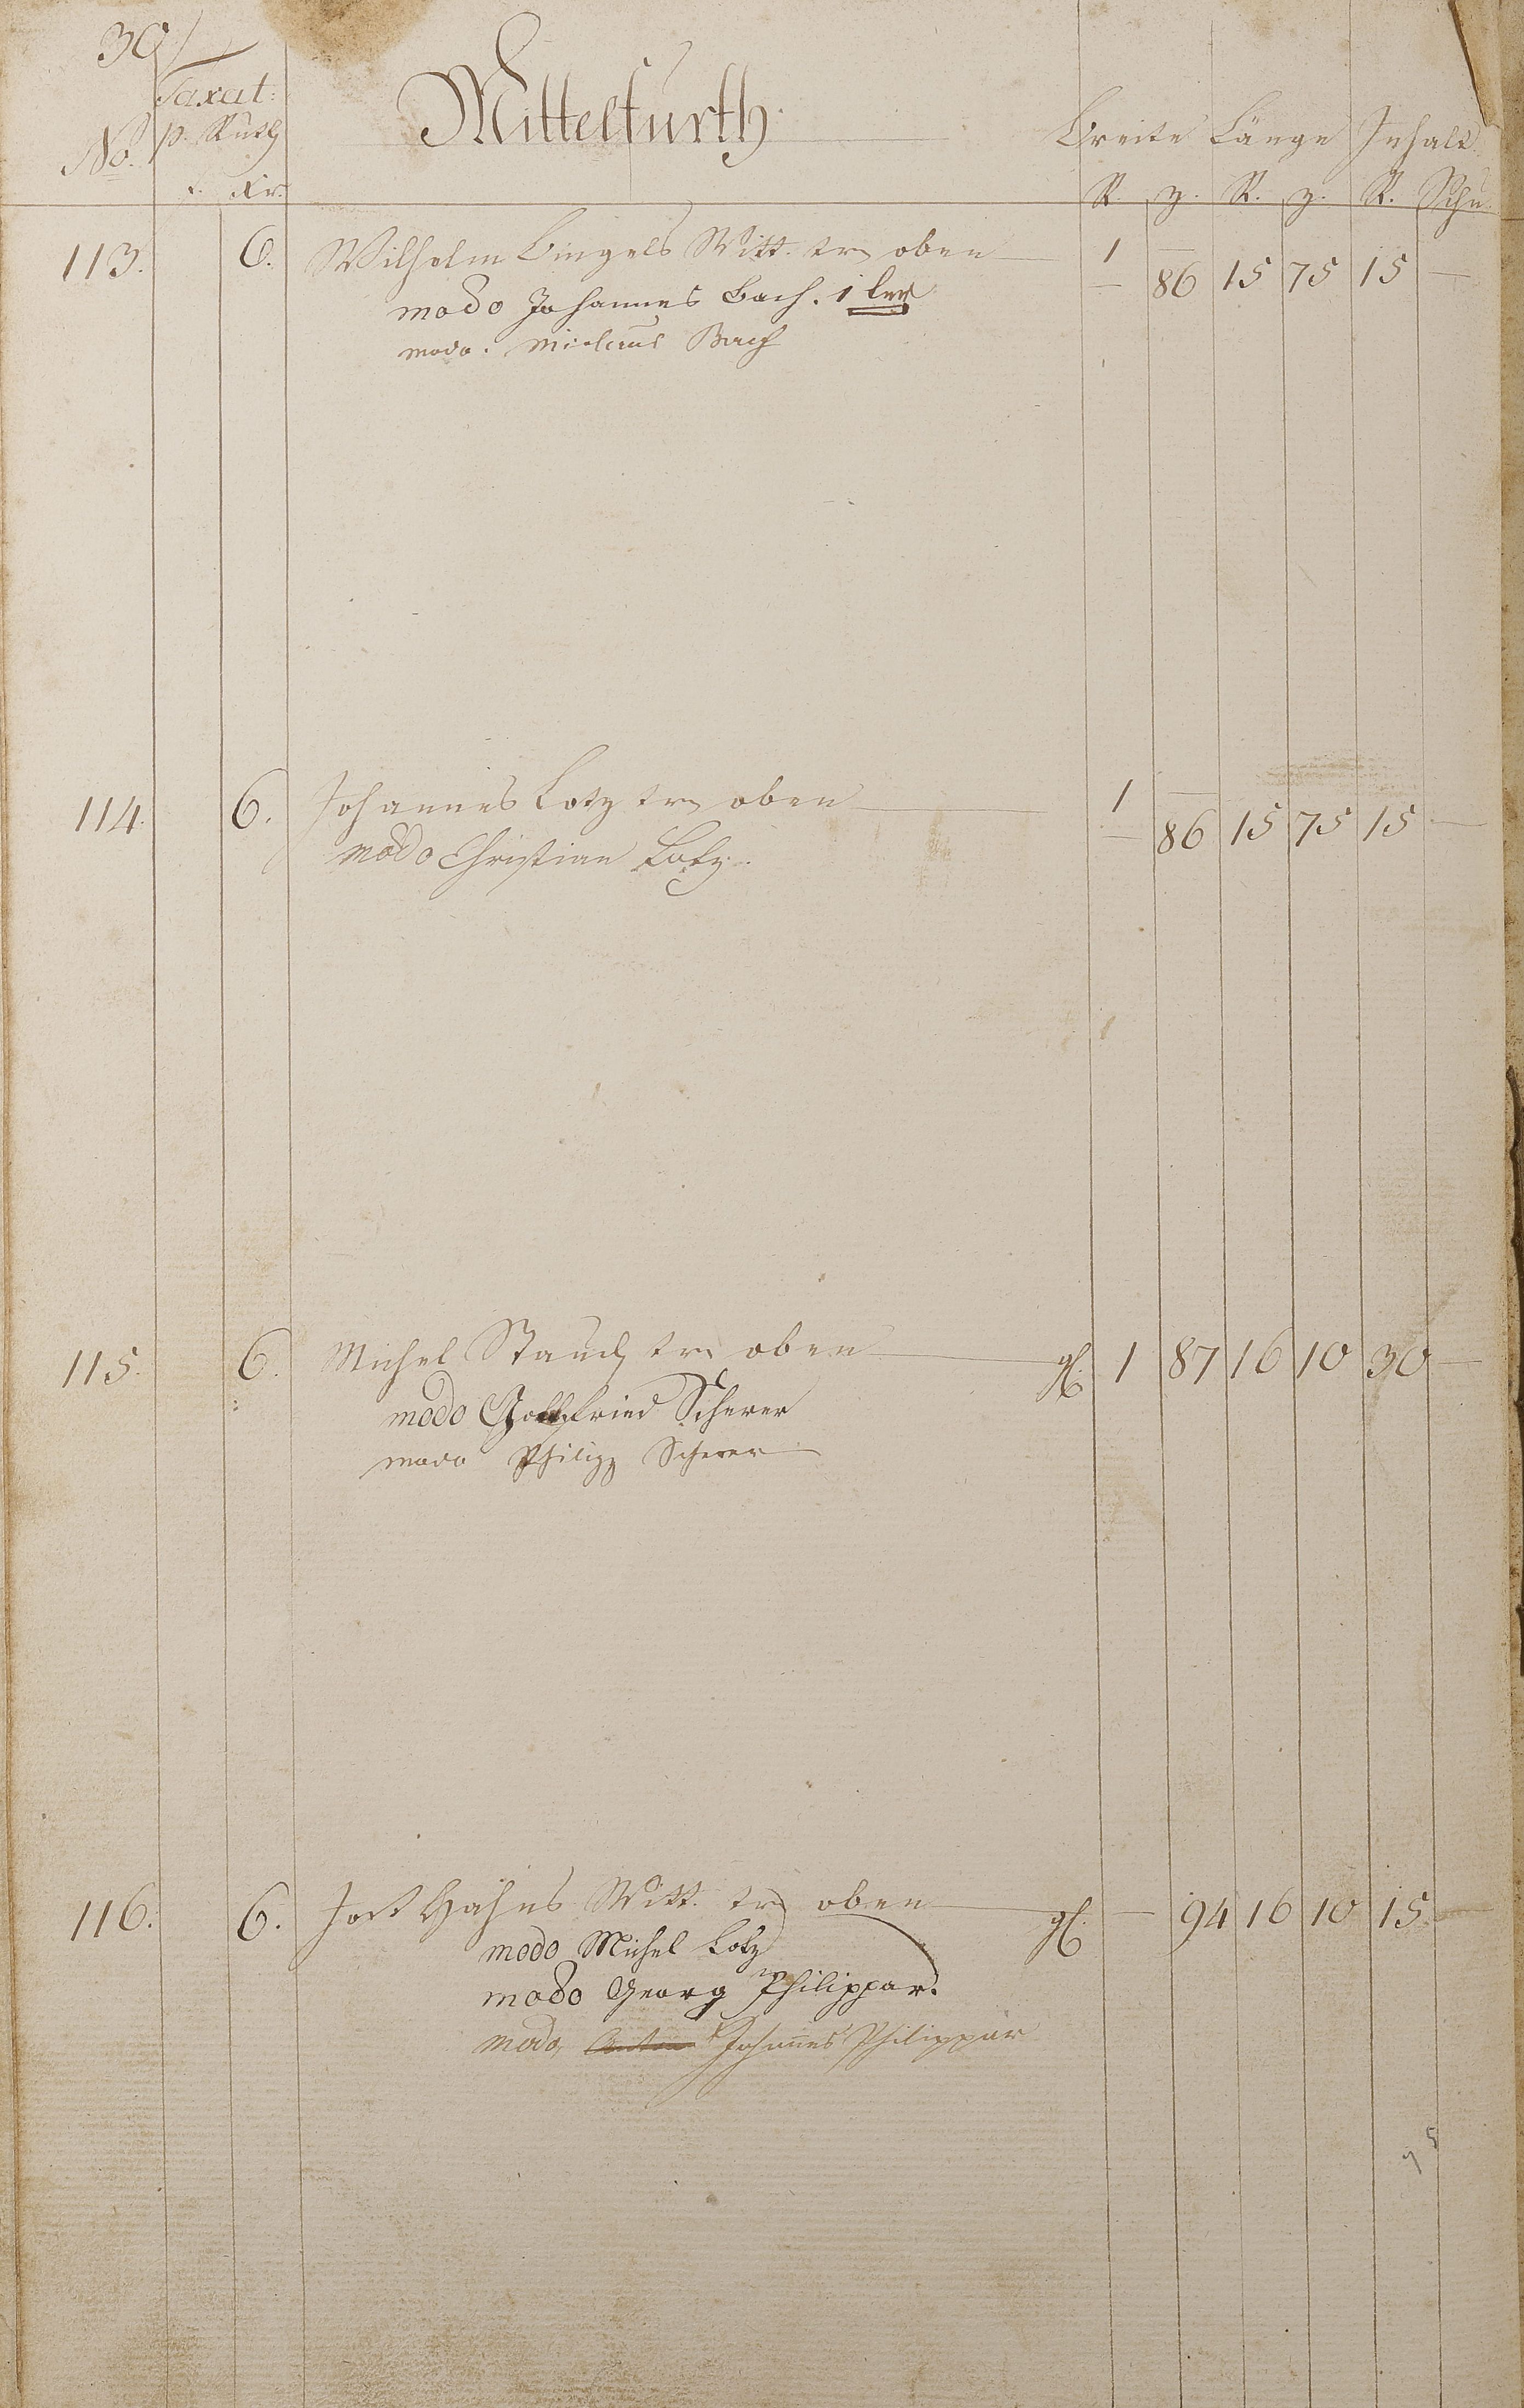 30
Taxat:
No. p. Ruth
f. Xr.
Mittelfurth.
Breite Länge Inhalt
R. z. R. z. R. Schu.
113. 6. Wilhelm Bingels Witt. oben 1 86 15 75 15
modo Johannes Bach. 1
modo: Bach
114. 6. Johannes Lotz oben 1 86 15 75 15
modo Christian Lotz.
115. 6. Michel Stauch oben gl. 1 87 16 10 30
modo Gottfried Scherer
modo Philipp Scherer
116. 6. Jost Hahns Witt. oben gl. 94 16 10 15
modo Michel Lotz
modo Georg Philippar.
modo Johannes Philippar
95